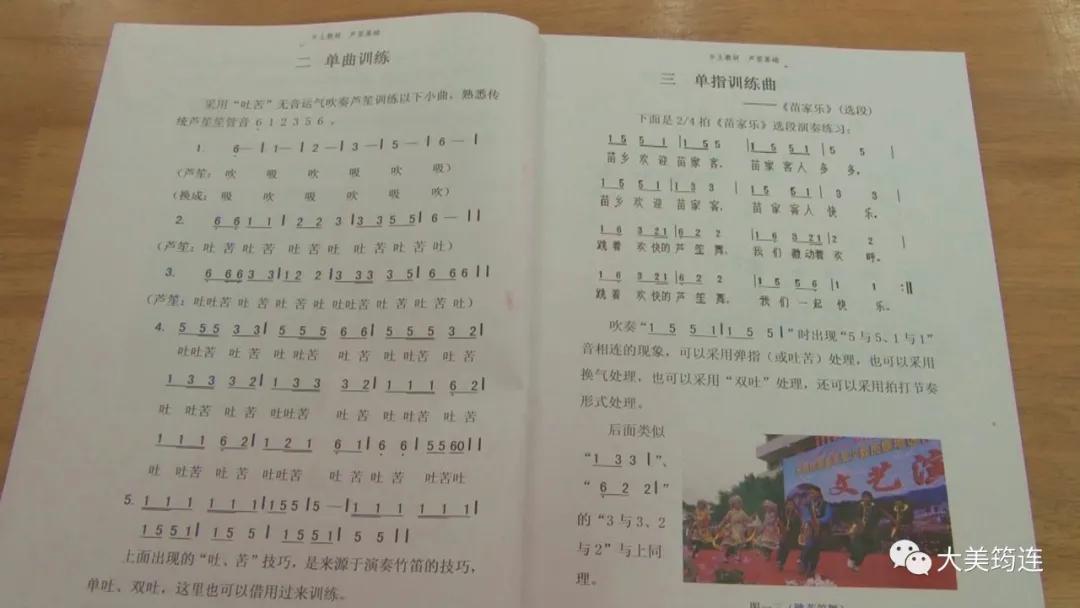 乡土教材 芦笙基础
二 单曲训练
采用“吐苦”无音运气吹奏芦笙训练以下小曲，熟悉传
统芦笙笙管音 6 1 2 3 5 6 。
1. 6— | 1— | 2— | 3— | 5— | 6— |
（芦笙：吹 吸 吹 吸 吹 吸）
（换成：吸 吹 吸 吹 吸 吹）
2. 6 6 1 1 | 2 2 3 | 3 3 5 5 | 6 — ||
（芦笙：吐 苦 吐 苦 吐 苦 吐 吐 苦 吐 苦 吐）
3. 6 6 6 3 3 | 1 2 2 | 3 3 3 3 5 | 6 6 6 6 ||
（芦笙：吐吐苦 吐 苦 吐 苦 吐 吐吐苦 吐 苦 吐 苦 吐）
4. 5 5 5 3 3 | 5 5 5 6 6 | 5 5 5 3 2 |
吐吐苦 吐 苦 吐 吐苦 吐 苦 吐 吐苦 吐 苦
1 3 3 3 2 | 1 3 3 3 2 | 1 1 1 6 2 |
吐 吐苦 吐 苦 吐吐苦 吐 苦 吐 吐苦 吐 苦
1 1 1 6 2 | 1 2 1 6 1 | 6 6 5 5 6 0 ||
吐 吐苦 吐苦 吐 吐苦 吐 苦 吐 吐苦吐
5. 1 1 1 1 1 1 | 1 5 5 5 | 5— | 1 1 1 1 1 1 |
1 5 5 1 | 1 5 5 5 | 1 5 5 1 | 1 5 5 5 ||
上面出现的“吐、苦”技巧，是来源于演奏竹笛的技巧，
单吐、双吐，这里也可以借用过来训练。
乡土教材 芦笙基础
三 单指训练曲
——《苗家乐》（选段）
下面是 2/4 拍《苗家乐》选段演奏练习：
1 5 5 1 | 1 5 5 | 1 5 5 1 | 5 5 |
苗乡 欢迎 苗家 客， 苗家 客人 多 多。
1 5 5 1 | 1 3 3 | 1 5 5 1 | 3 3 |
苗乡 欢迎 苗家 客， 苗家 客人 快 乐。
1 6 3 2 1 | 6 2 2 | 1 6 3 2 1 | 2 2 |
跳着 欢快的 芦 笙 舞， 我们 激动着 欢 呼。
1 6 3 2 1 | 6 2 2 | 1 5 5 6 | 1 1 :||
跳着 欢快的 芦 笙 舞， 我们 一起 快 乐。
吹奏“1 5 5 1 | 1 5 5 |”时出现“5 与 5、1 与 1”
音相连的现象，可以采用弹指（或吐苦）处理，也可以采用
换气处理，也可以采用“双吐”处理，还可以采用拍打节奏
形式处理。
后面类似
“1 3 3 |”、
“6 2 2 |”
的“3 与 3、2
与 2”与上同
理。
文艺演
大美筠连